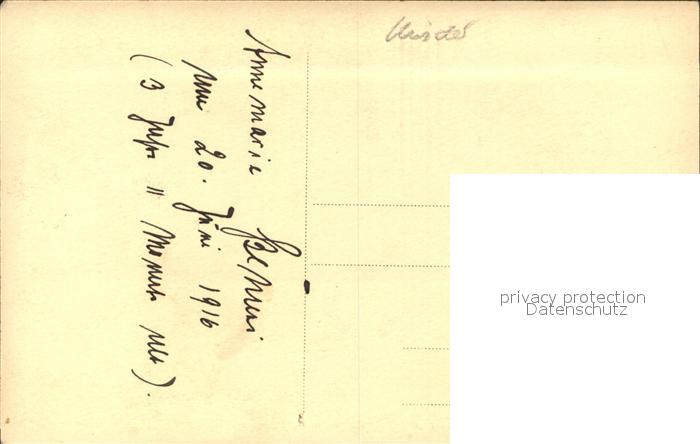 Kinder
Annemarie
am 20. Juni 1916
(3 Jahre 11 Monate alt).
privacy protection
Datenschutz